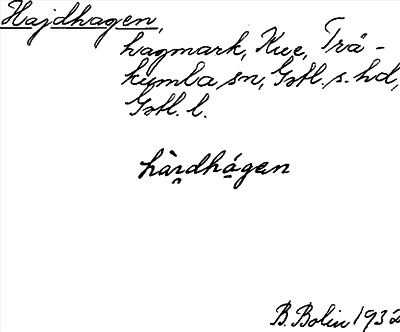 Hajdhagen,
hagmark, Kue, Trä-
kumla sn, Gotl. s. hd,
Gotl. l.
hàr̯dhá̯gen
B. Bolin 1932